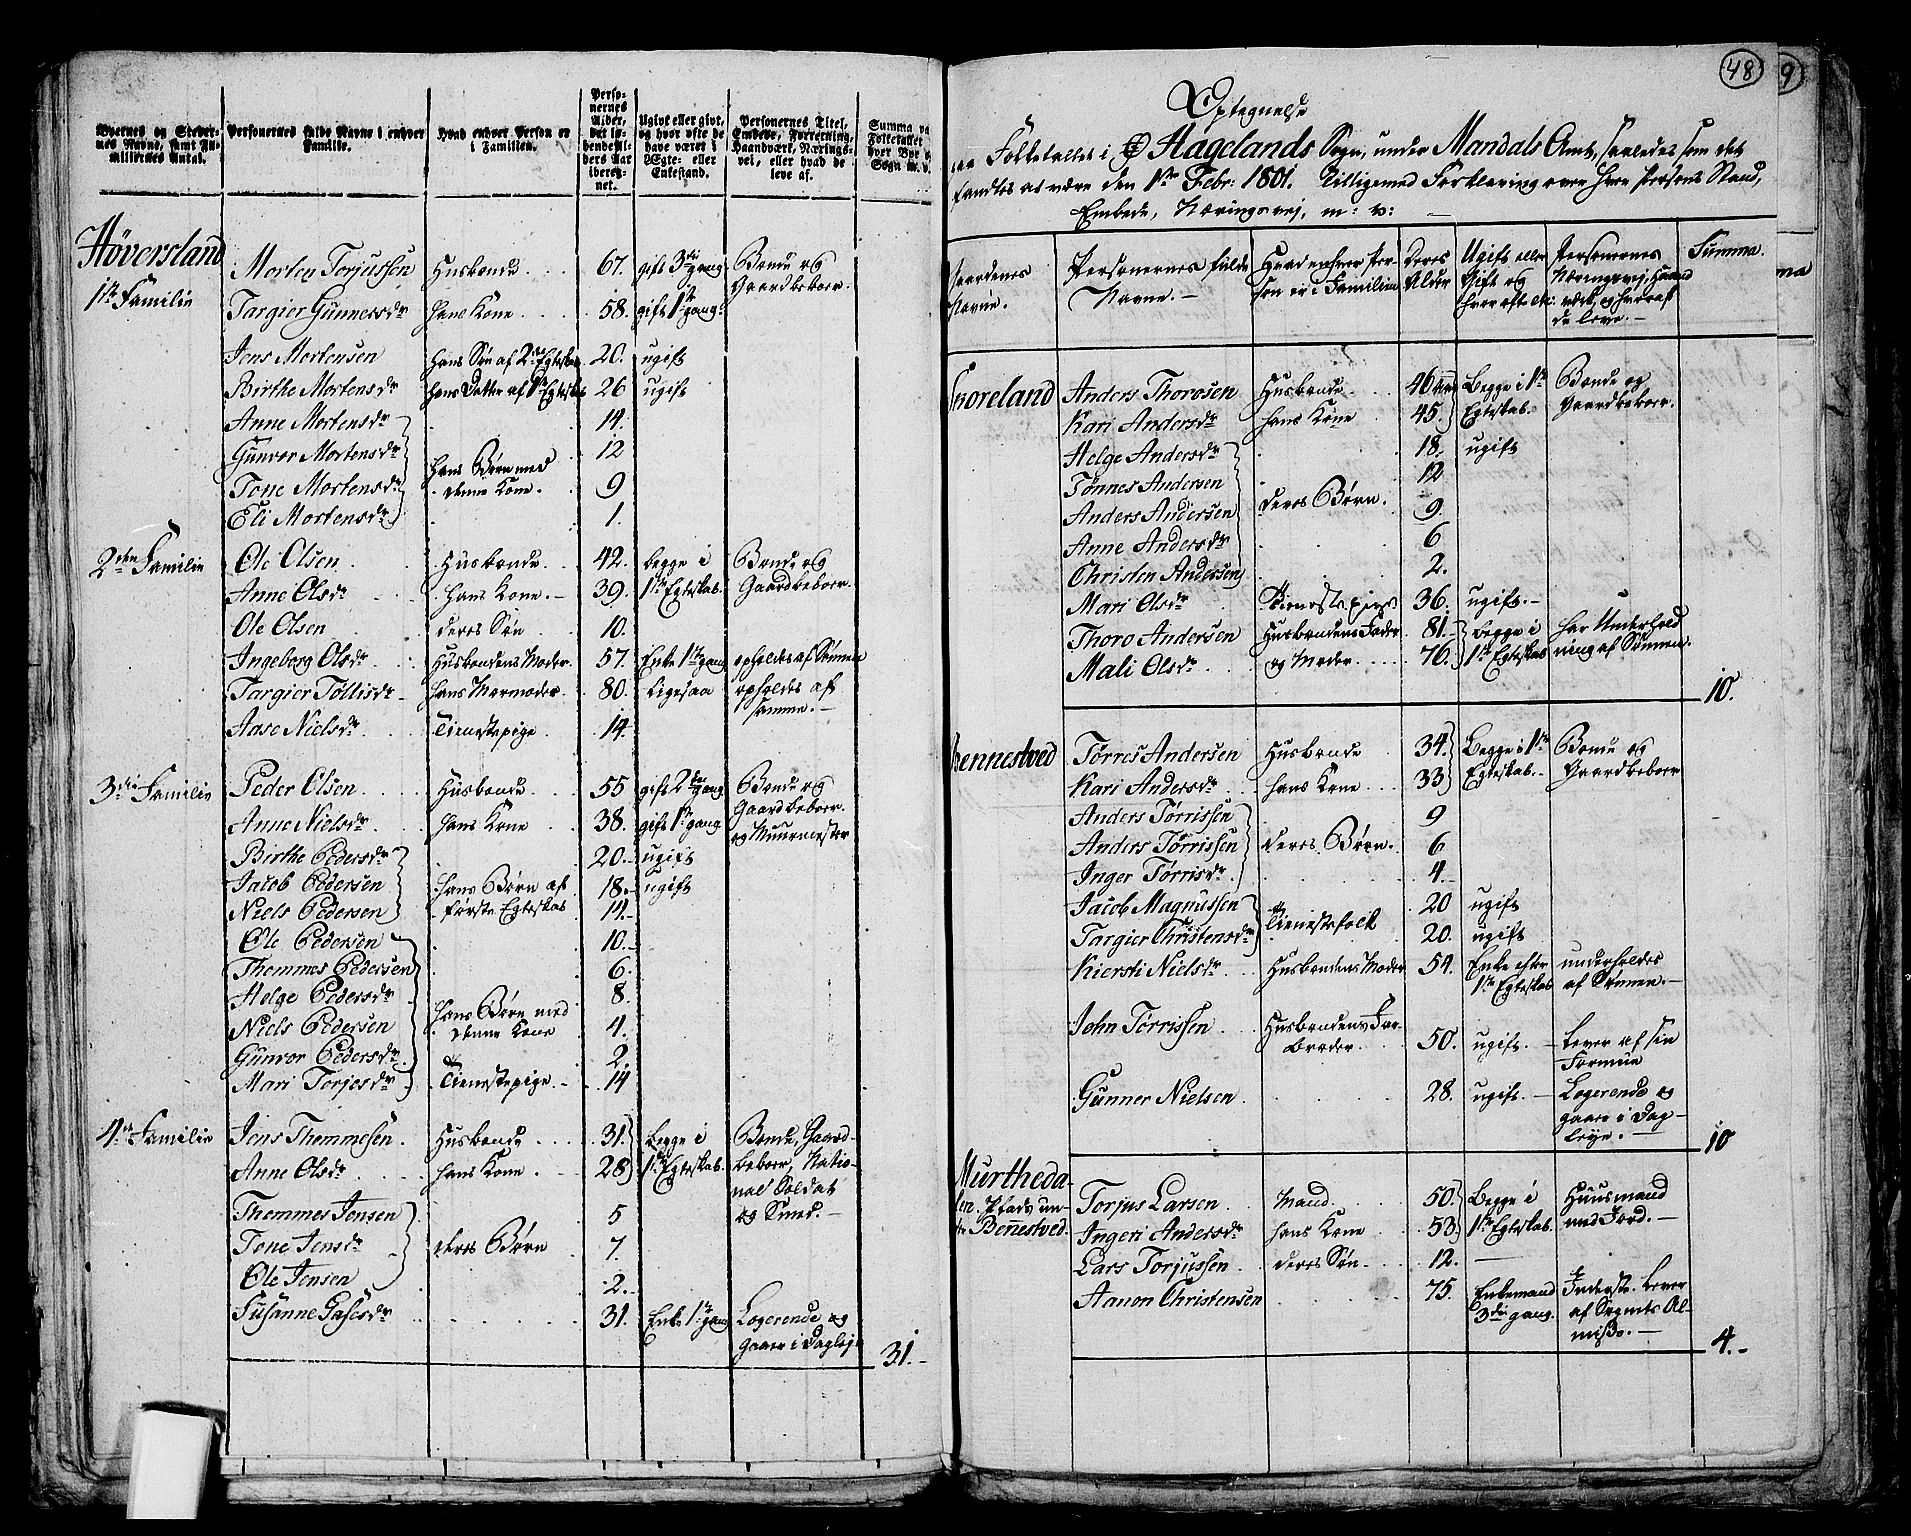 Byernes og Steder-
nes Navne, samt Fa-
miliernes Antal.
Personernes fulde Navne i enhver
Familie.
Hvad enhver Person er
i Familien.
Perso-
nernes
Alder,
det lø-
bende Al-
ders Aar
ibereg-
net.
Ugivt eller givt,
og hvor ofte de
have været i
Ægte- eller
Enkestand.
Personernes Titel,
Embede, Forretning,
Haandværk, Nærings-
vei, eller hvad de
leve af.
Summa
Folketallet
hver Bye
Sogn m. v.
Höversland
Morten Torjussen Husbonde 67. gift 3die gang Bonde og
Gaardbeboer.
1ste Familie
Targier Gunnersdr hans Kone 58. gift 1ste gang
Jens Mortensen hans Søn af 2det Egteskab 20. ugift
Birthe Mortensdr hans Datter af 1ste Egteskab 26 ugift
Anne Mortensdr 14.
Gunvor Mortensdr 12
hans Børn med
Tone Mortensdr denne Kone. 9
Eli Mortensdr 1.
2den Familie
Ole Olsen Husbonde 42. begge i Bonde og
Anne Olsdr hans Kone. 39. 1ste Egteskab. Gaardbeboer.
Ole Olsen deres Søn 10.
Ingeborg Olsdr Husbondens Moder 57. Enke 1ste gang opholdes af Sønnen
Targier Tollisdr hans Mormoder 80. ligesaa opholdes af
samme.
Aase Nielsdr Tienestepige 14.
3die Familie
Peder Olsen Husbonde 55 gift 2den gang Bonde og
Gaardbeboer
Anne Nielsdr hans Kone 38. gift 1ste gang og Muurmester
Birthe Pedersdr 20. ugift
Jacob Pedersen hans Børn af 18. ugift
Niels Pedersen første Egteskab 14.
Ole Pedersen 10.
Themmes Pedersen 6.
Helge Pedersdr 8.
hans Børn med
Niels Pedersen denne Kone 4.
Gunvor Pedersdr 2.
Mari Torjesdr Tienestepige. 14
4de Familie Jens Themmesen. Husbonde 31. begge i Bonde, Gaard-
Anne Olsdr hans Kone 28 1ste Egteskab. beboer, Natio-
nal Soldat
Themmes Jensen 5 og Smed.
Tone Jensdr deres Børn 7.
Ole Jensen 2.
Susanne Gasesdr 31. Enke 1ste gang Logerende og
gaaer i Dagleje
31.
48
9
Optegnelse
Folketallet i Hägelands Sogn, under Mandals Amt, saaledes som det
fandtes at være den 1ste Febr: 1801. tilligemed Forklaring over hver Persons Stand,
Embede, Næringsvej, m: v:
Gaardenes
Navne.
Personernes fulde
Navne.
Hvad enhver Per-
son er i Familien
Deres
Alder
Ugift eller
Gift og
hvor ofte etc:
Personernes
Næringsvej, Haand
værk, og hvoraf
de leve.
Summa.
Anders Thorosen Husbonde 46 Begge i 1ste Bonde og
Kari Andersdr hans Kone 45. Egteskab. Gaardbeboer.
Helge Andersdr 18. ugift
Tønnes Andersen 12
Anders Andersen deres Børn. 9.
Anne Andersdr 6
Christen Andersen 2.
Mari Olsdr Tienestepige 36. ugift.
Thoro Andersen Husbondens Fader 81. begge i har Underhold
Mali Olsdr og Moder 76. 1ste Egteskab ning af Sønnen.
10.
Bennestved Tørres Andersen Husbonde 34. Begge i 1ste Bonde og
Kari Andersdr hans Kone 33 Egteskab. Gaardbeboer
Anders Tørrissen 9
Anders Tørrissen deres Børn. 6
Inger Tørrisdr 4.
Jacob Magnussen 20 ugift
Tienestefolk
Targier Christensdr 20. ugift
Kiersti Nielsdr Husbondens Moder 54. Enke efter underholdes
1ste Egteskab af Sønnen.
John Tørrissen Husbondens Far-
broder 50. ugift. Lever af sin
Formue
Gunner Nielsen 28. ugift. Logerende og
gaaer i Dag-
leye.
10
Murtheda-
len, Plads un-
der Bennestved.
Torjus Larsen Mand 50. Begge i Huusmand
Ingeri Andersdr hans Kone 53. 1ste Egteskab. med Jord.
Lars Torjussen deres Søn 12.
Aanon Christensen 75. Enkemand Inderste. lever
3die gang. af Sognets Al-
misse.
4.